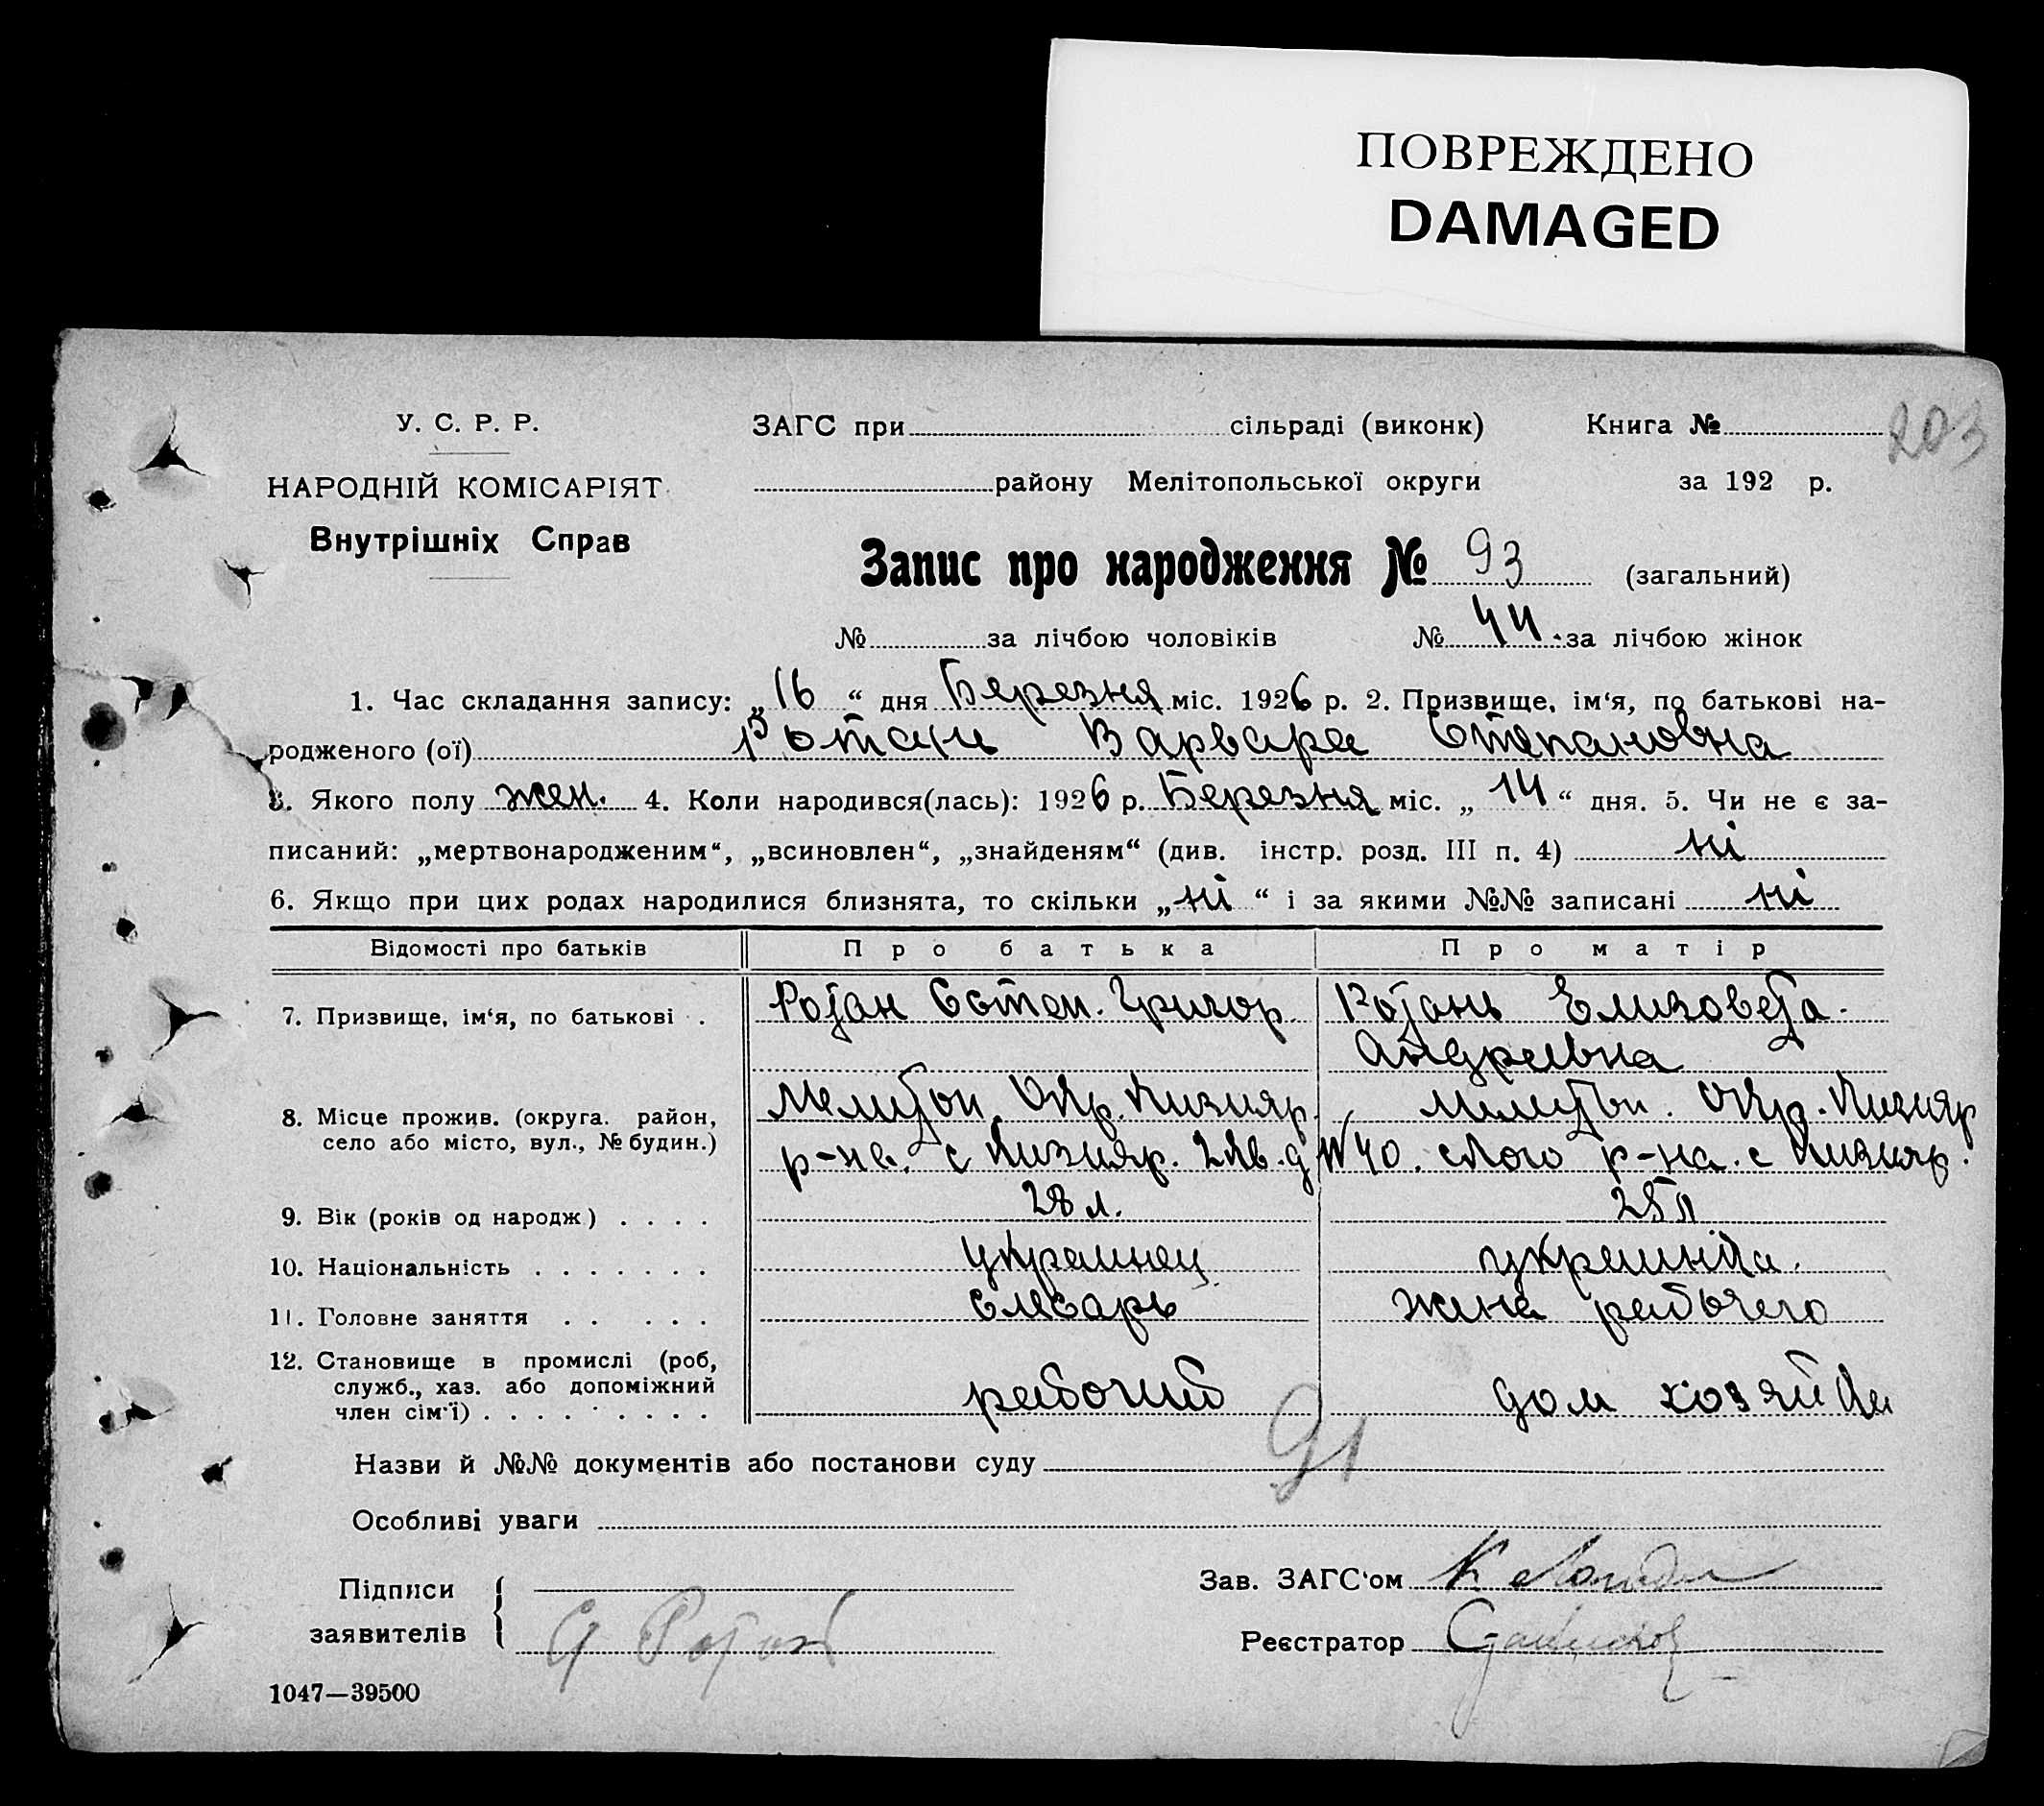 ПОВРЕЖДЕНО
DAMAGED
203
У. С. Р. Р.
НАРОДНІЙ КОМІСАРІЯТ
Внутрішніх Справ
ЗАГС при сільраді (виконк) Книга №
району Мелітопольської округи за 192 р.
Запис про народження № 93 (загальний)
№ за лічбою чоловіків № 44 за лічбою жінок
1. Час складання запису: „16“ дня Березня міс. 1926 р. 2. Призвище, ім‘я, по батькові на-
родженого (ої) Ротань Варвара Степановна
3. Якого полу жен. 4. Коли народився(лась): 1926 р. Березня міс. „14“ дня. 5. Чи не є за-
писаний: „мертвонародженим“, „всиновлен“, „знайденям“ (див. інстр. розд. III п. 4) ні
6. Якщо при цих родах народилися близнята, то скільки „ні“ і за якими №№ записані ні
Відомості про батьків Про батька Про матір
7. Призвище, ім‘я, по батькові . Ротан Степ. Григор. Ротань Елизовета
Андреевна
8. Місце прожив. (округа. район, Мелитоп. Окр. Кизияр. Мелитоп. Окр. Кизияр
село або місто, вул., № будин.) р-на. с Кизияр. 2 кв. д № 40. р-на. с Кизияр.
9. Вік (років од народж) . . . . 28 л. 25 л
10. Національність . . . . . . . украинец украинка.
11. Головне заняття . . . . . слесарь жена рабочего
12. Становище в промислі (роб,
служб., хаз. або допоміжний рабочий дом хозяйка
член сім‘ї) . . . . . . . . .
91
Назви й №№ документів або постанови суду
Особливі уваги
Підписи Зав. ЗАГС‘ом
заявителів Реєстратор
1047—39500